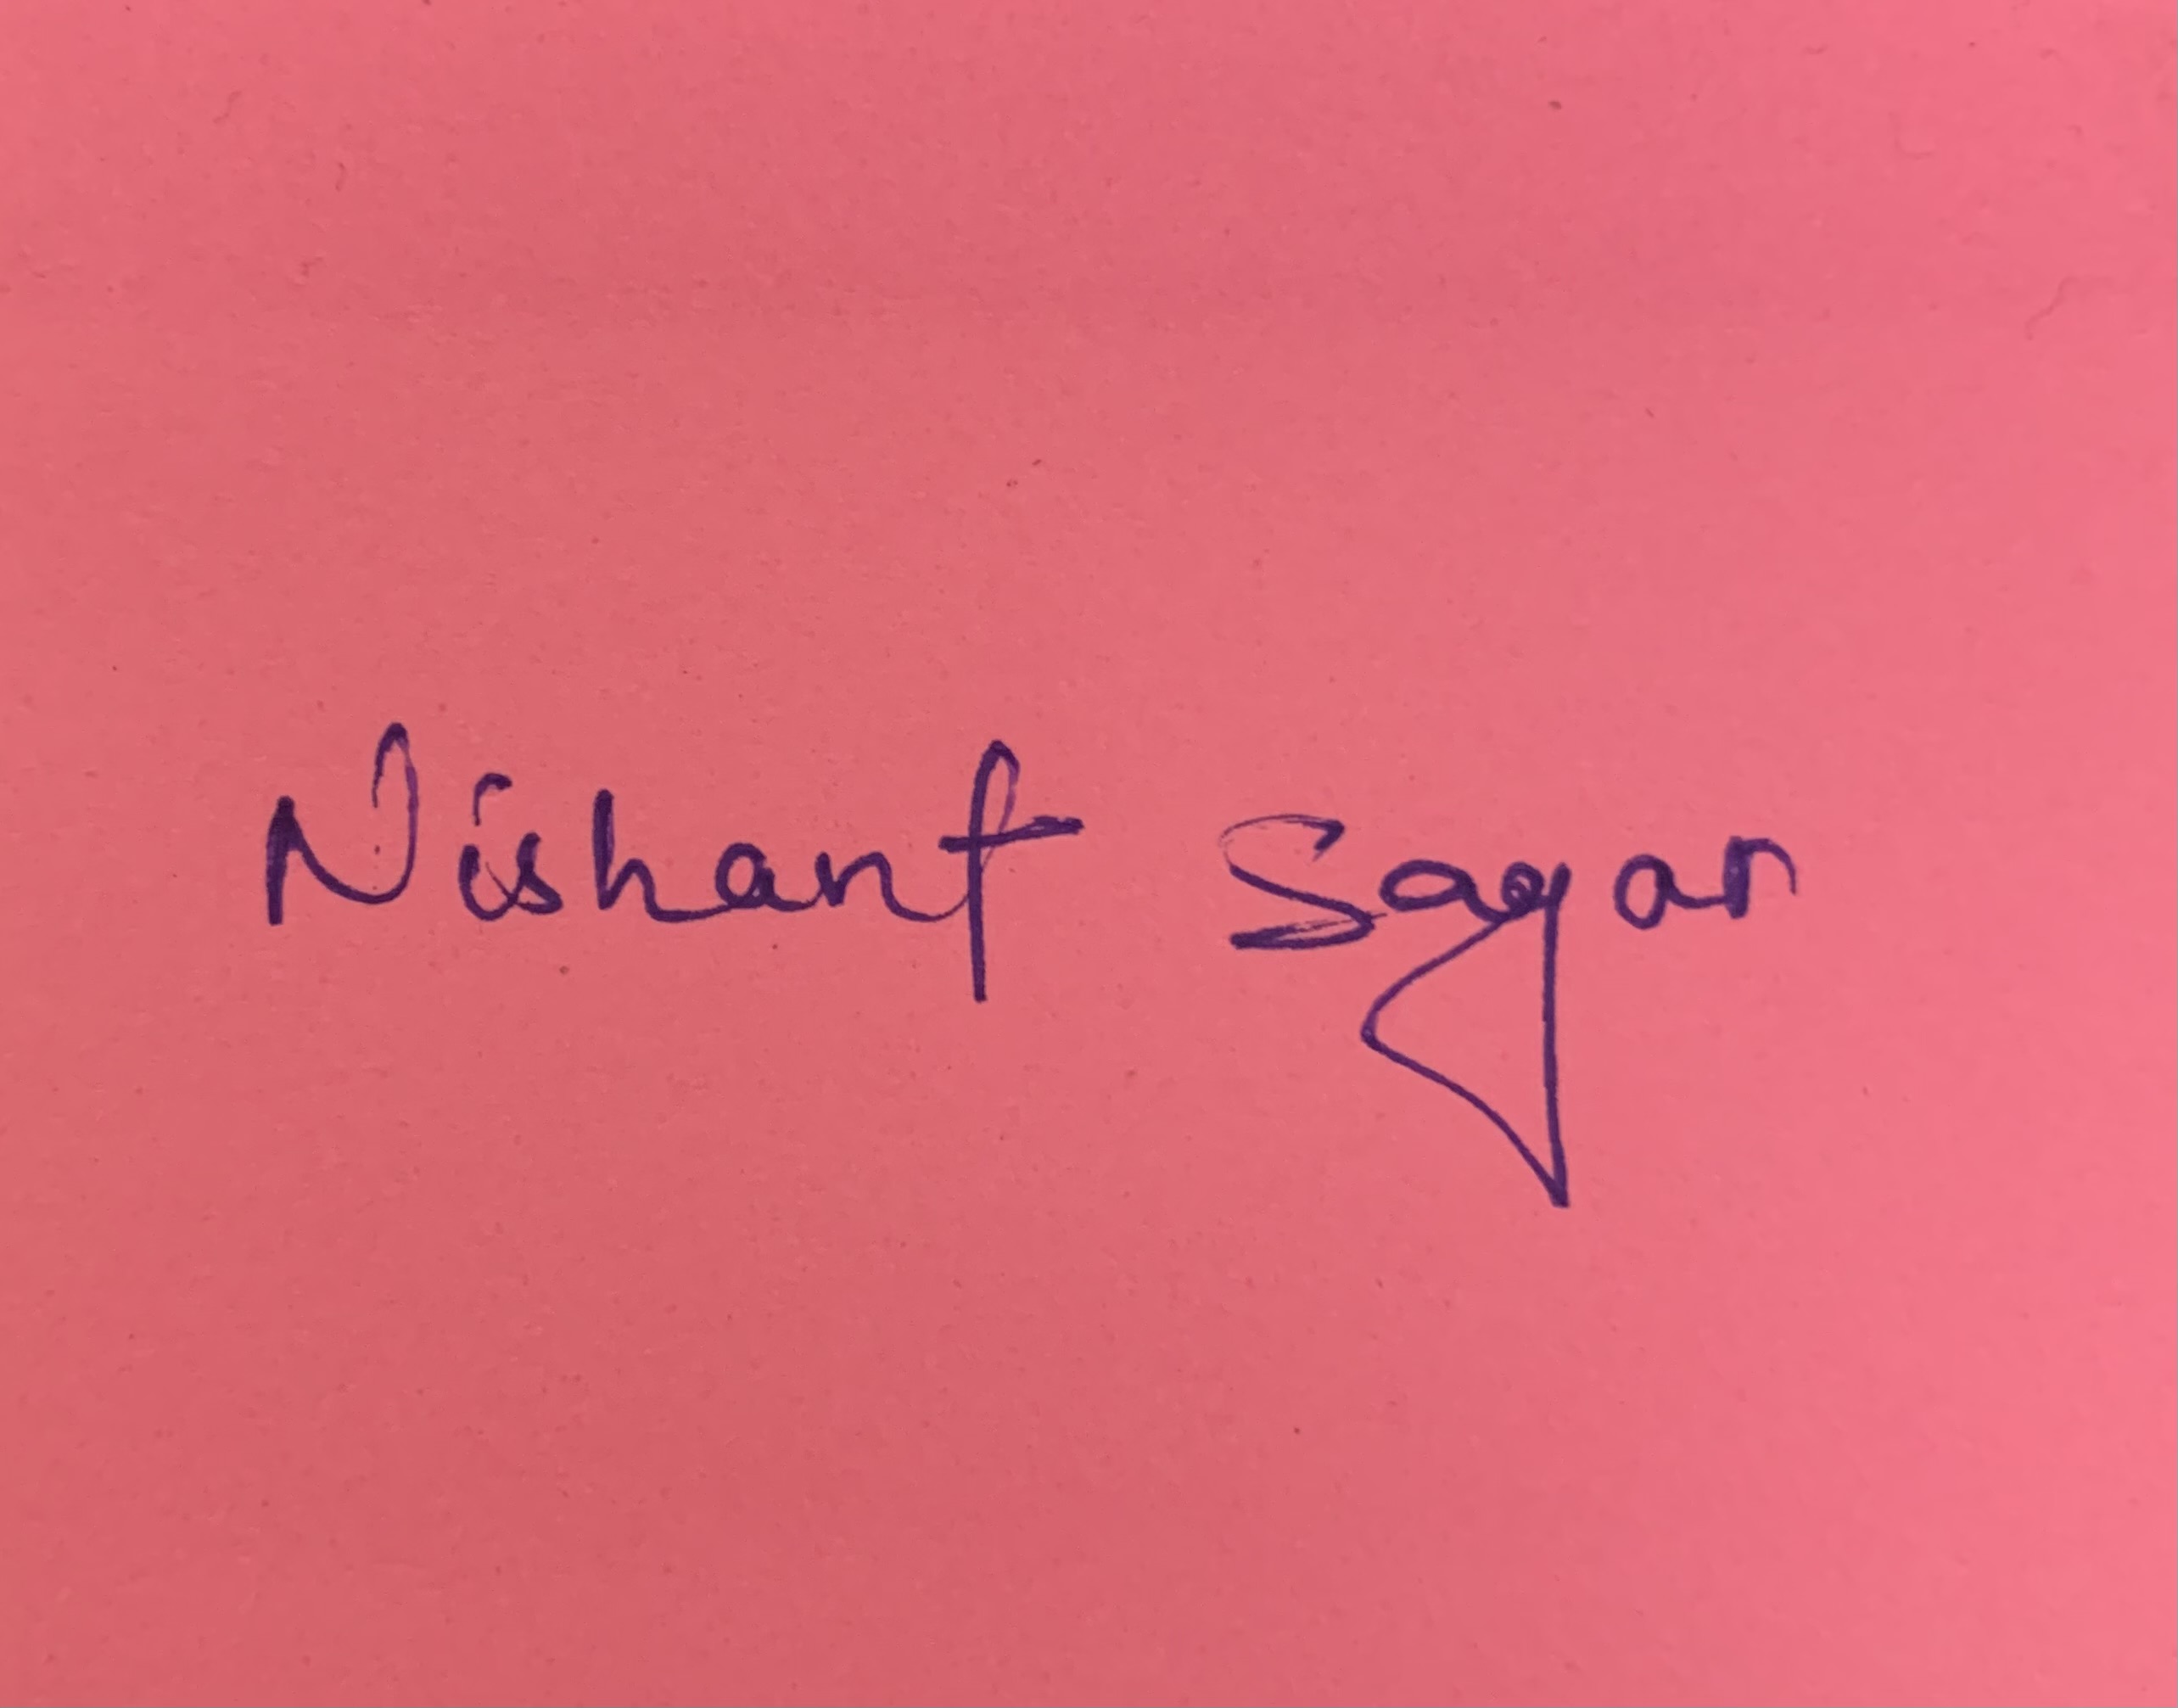 Nishant Sagar